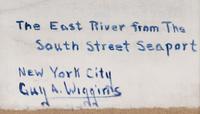 The East River from The
South Street Seaport
New York City
Guy A. Wiggins